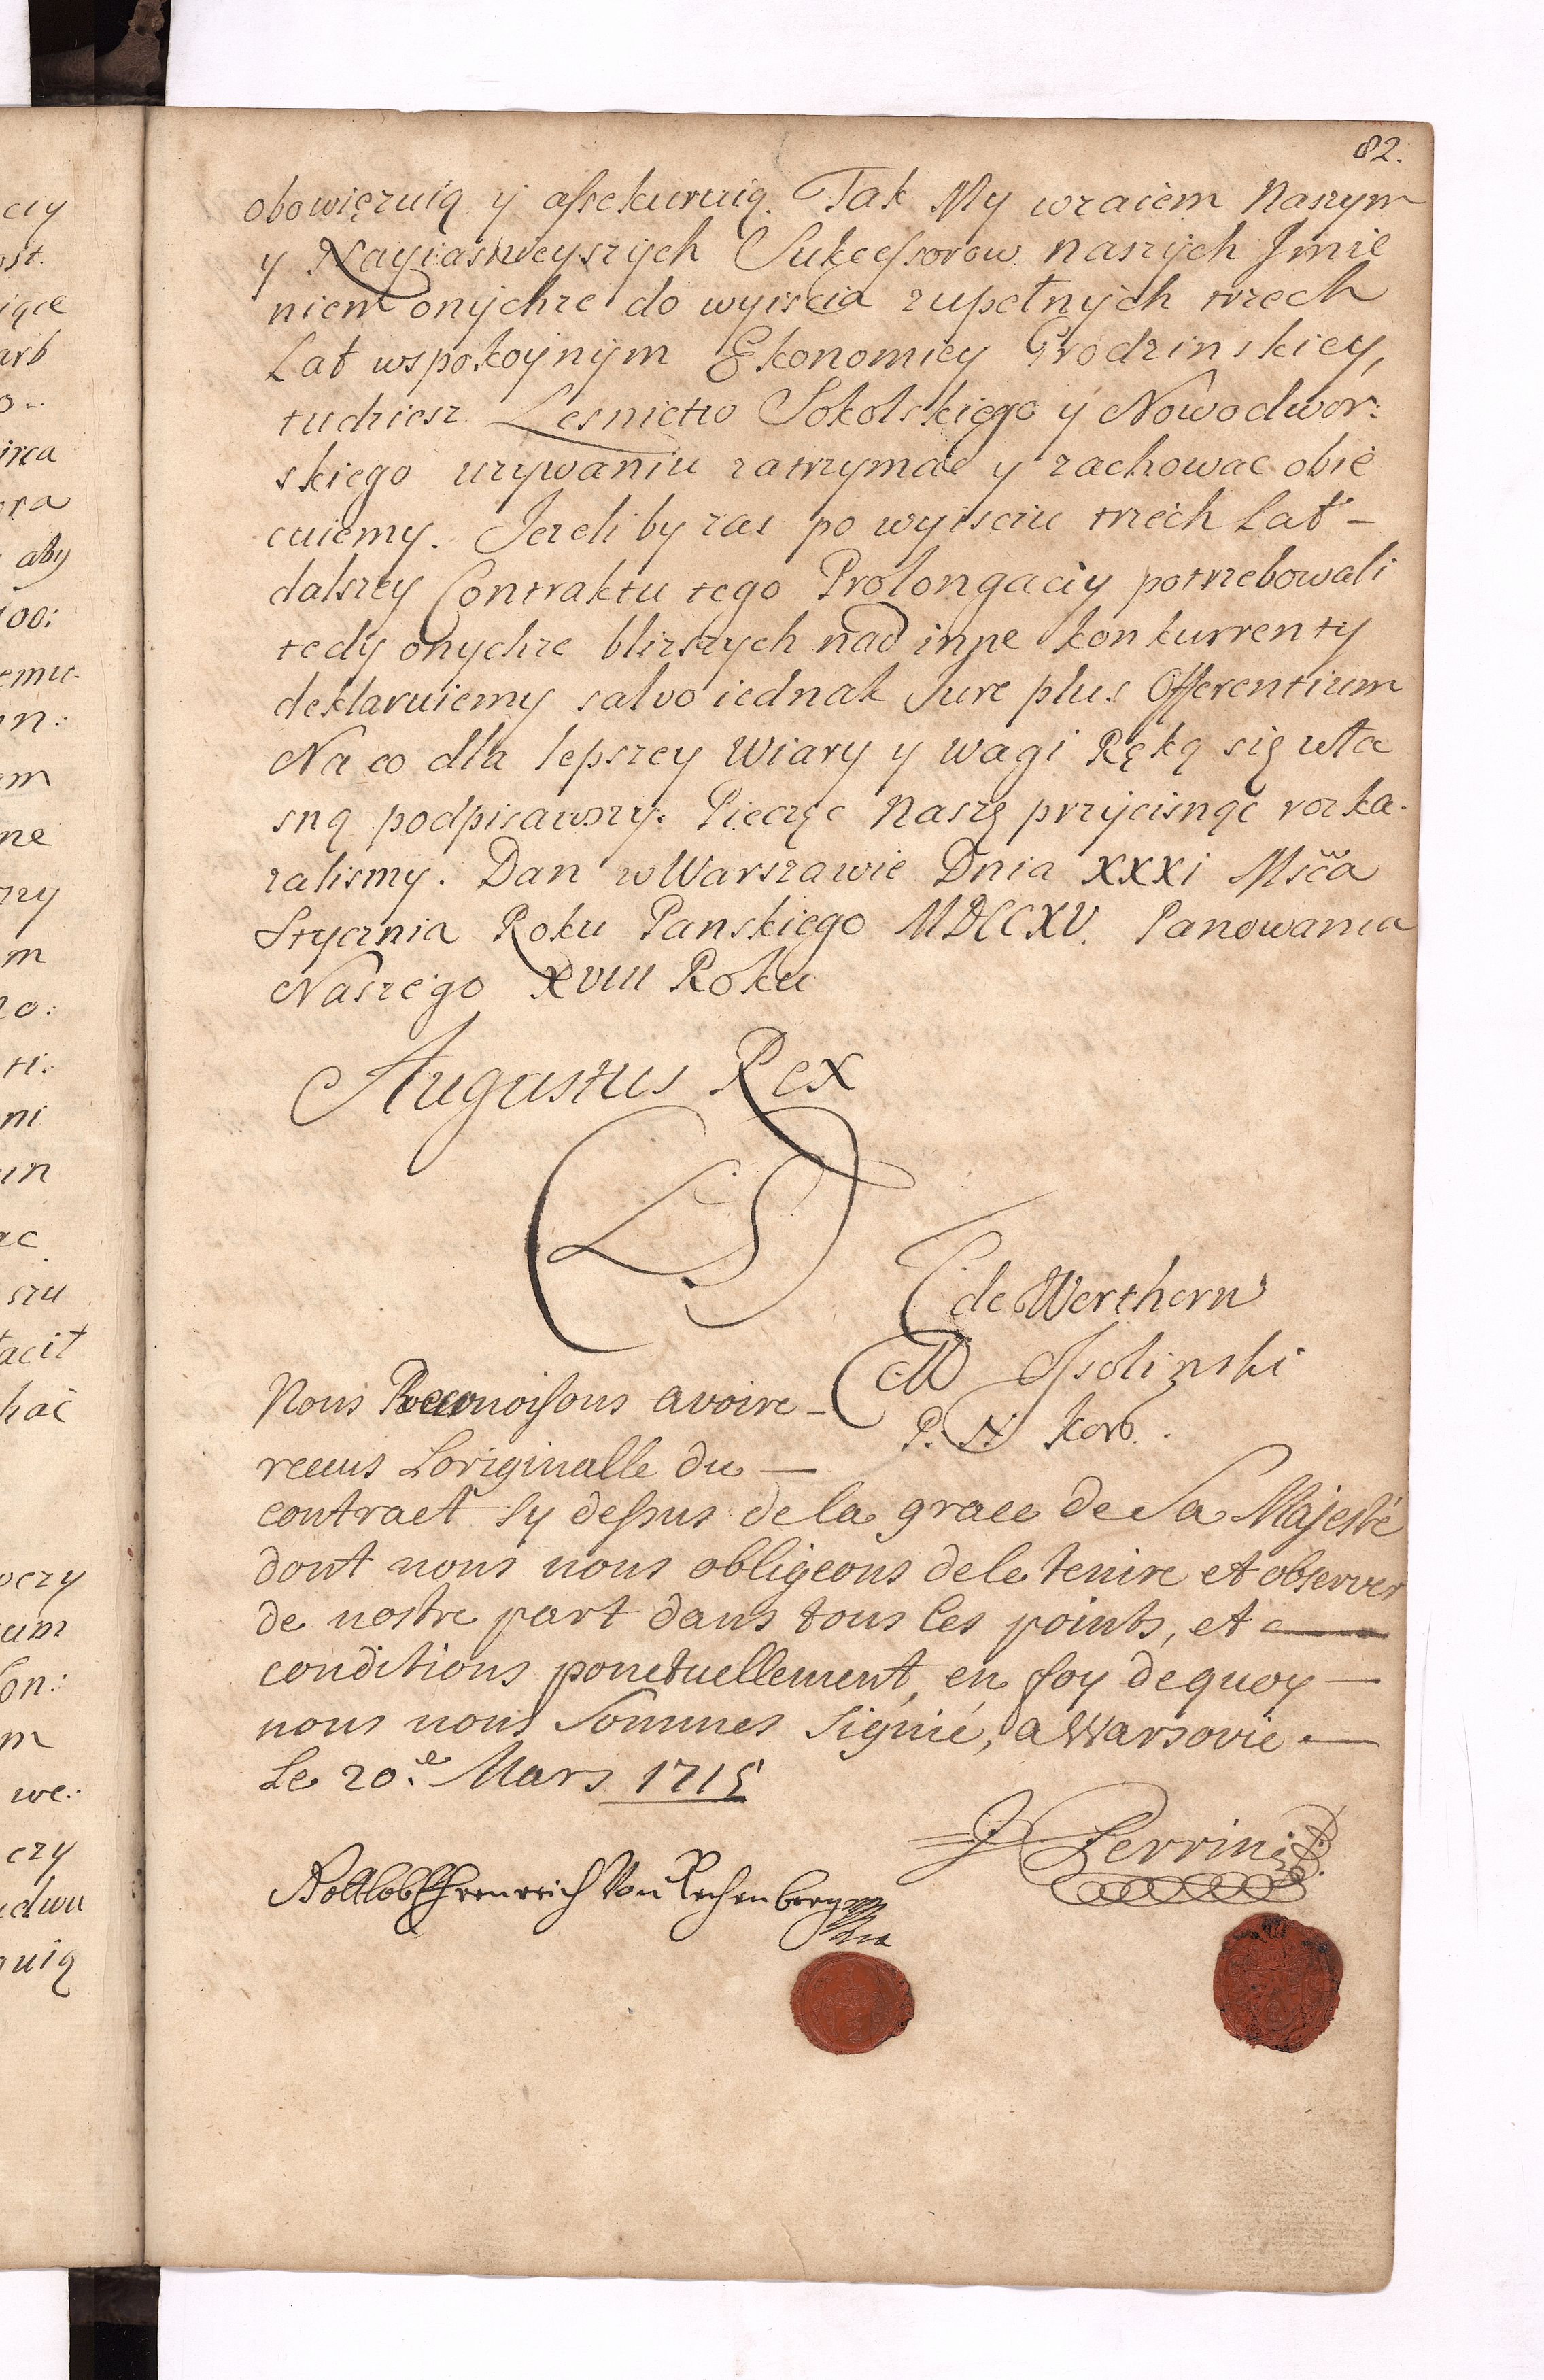 82.
obowięzuią y aſsekuruią. Tak My wzaiem Naszym
y Nayiasnieyszych Sukceſsorow naszych Jmie
niem onychze do wyiscia zupełnych trzech
Lat wspokoynym Ekonomiey Grodzinskiey,
tudziesz Lesnictw Sokolskiego y Nowodwor:
skiego uzywaniu zatrzymac y zachowac obie
cuiemy. Jezeli by zas po wyisciu trzech Lat –
dalszey Contraktu tego Prolongaciy potrzebowali
tedy onychze blizszych nad inne konkurrenty
deklaruiemy salvo iednak Jure plus Offerentium
Na co dla lepszey Wiary y wagi Ręką się wła
sną podpisawszy. Pieczęc naszę przycisnąc rozka.
zalismy. Dan w Warszawie Dnia XXXI Msca
Stycznia Roku Panskiego MDCCXV. Panowania
Naszego XVIII Roku
Augustus Rex
LS
de Werthern
P. N. Kor.
Nous Reconoiſsons avoire –
recus Loriginalle du —
contract sy deſsus de la grace de Sa Majesté
dont nous nous obligeons de le tenire et observer
de nostre part dans tous les points, et —
conditions ponctuellement, en foy de quoy —
nous nous Sommes Signié, a Warsovie. —
Le 20.e Mars 1715
J Perrini
Gottlob Ehrenreich Von Rechenberg